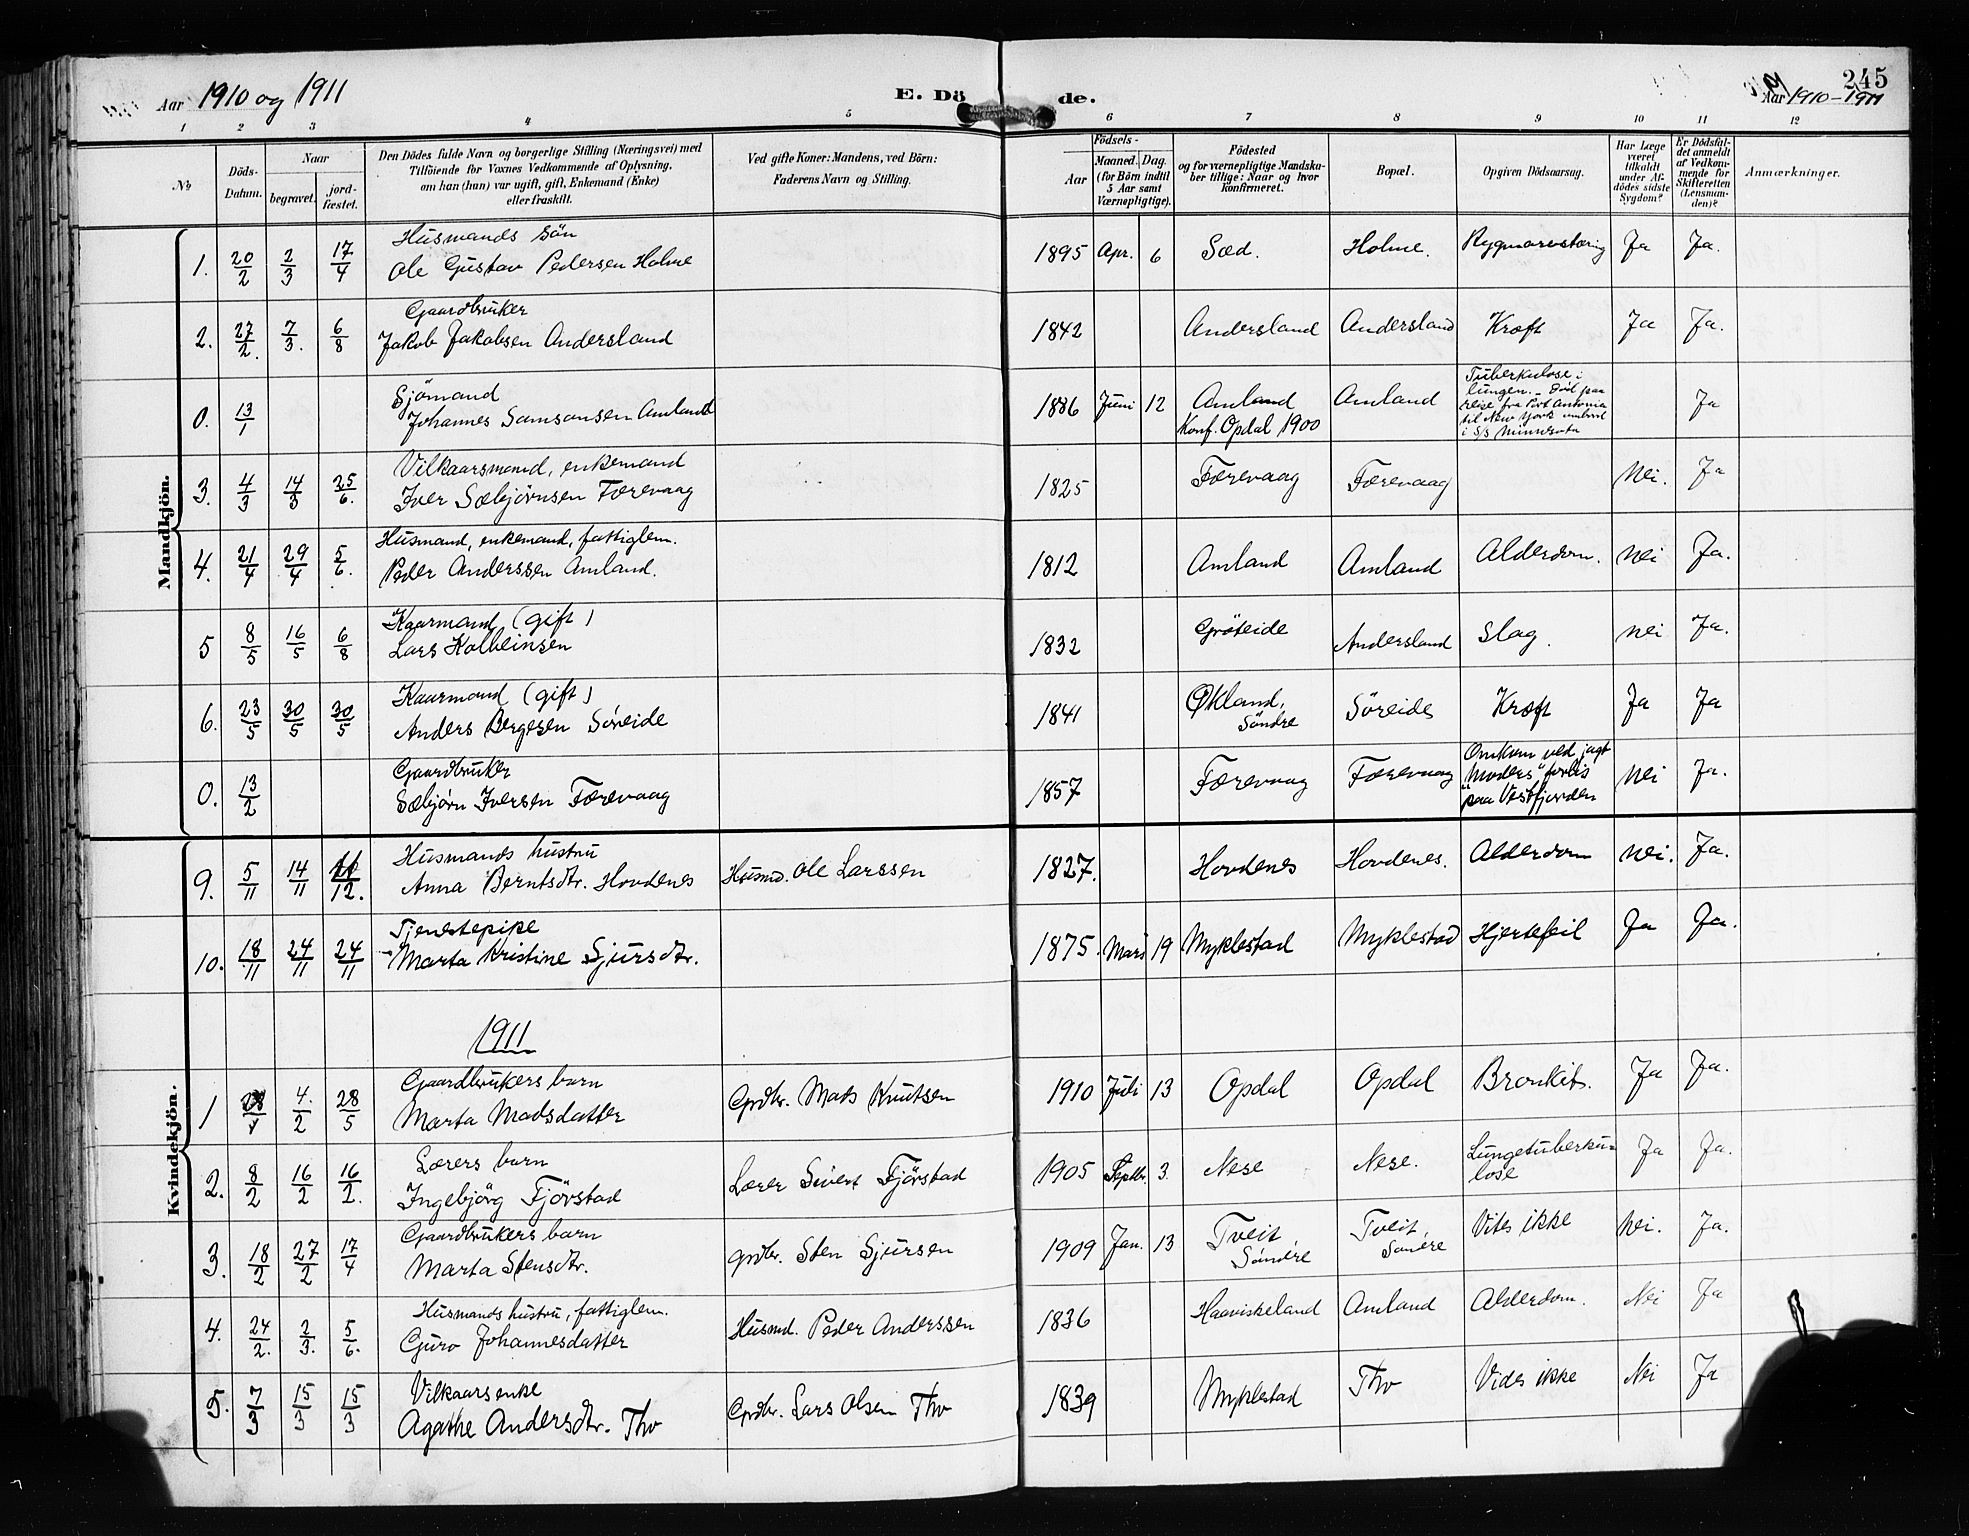 Aar 1910 og 1911
E. Dö de.
245
Aar 1910-1911
1 2 3 4 5 6 7 8 9 10 11 12
No
Döds-Datum.
Naar
begravet.
jord-fæstet.
Den Dödes fulde Navn og borgerlige Stilling (Næringsvei) med
Tilföiende for Voxnes Vedkommende af Oplysning,
om han (hun) var ugift, gift, Enkemand (Enke)
eller fraskilt.
Ved gifte Koner: Mandens, ved Börn:
Faderens Navn og Stilling.
Födsels-
Aar
Maaned. Dag.
(for Börn indtil
5 Aar samt
Værnepligtige).
Födested
og for værnepligtige Mandska-
ber tillige: Naar og hvor
konfirmeret.
Bopæl.
Opgiven Dödsaarsag.
Har Læge
været
tilkaldt
under Af-
dödes sidste
Sygdom?
Er Dödsfal-
det anmeldt
af Vedkom-
mende for
Skifteretten
(Lensman-
den)?
Anmærkninger.
Mandkjön.
1. 20/2 2/3 17/4 Husmands sön
Ole Gustav Pedersen Holme 1895 Apr. 6 Sæd. Holme. Rygmarvstæring Ja Ja.
2. 27/2. 7/3. 6/8 Gaardbruker
Jakob Jakobsen Andersland 1842 Andersland Andersland Kræft Ja Ja.
0. 13/1 Sjömand
Johannes Samsonsen Amland 1886 Juni 12 Amland
Konf. Opdal 1900 Amland Tuberkulose i
lungen. - Död paa
reise fra Port Antonia
til New York ombord
i S/S Minnesota Ja
3. 4/3 14/3 25/6. Vilkaarsmand, enkemand
Iver Sæbjørnsen Færevaag 1825 Færevaag Færevaag Nei. Ja
4. 21/4 29/4 5/6. Husmand, enkemand, fattiglem.
Peder Anderssen Amland. 1812 Amland Amland Alderdom. Nei Ja.
5 8/5 16/5 6/8 Kaarmand (gift)
Lars Kolbeinsen 1832 Gröteide Andersland Slag. Nei Ja.
6. 23/5 30/5 30/5 Kaarmand (gift)
Anders Bergesen Söreide 1841 Økland,
Söndre Söreide Kræft Ja Ja
0. 13/2 Gaardbruker
Sæbjörn Iversen Færevaag 1857 Færevaag Færevaag Omkom ved jagt
"Moders" forlis
paa Vestfjorden Nei Ja.
Kvindekjön.
9. 5/11 14/11 11/12. Husmands hustru
Anna Berntsdtr. Hovdenes Husmd. Ole Larssen 1827. Hovdenes Hovdenes. Alderdom Nei. Ja.
10. 18/11 24/11 24/11 Tjenestepike
Marta Kristine Sjursdtr. 1875. Mars 19 Myklestad Myklestad Hjertefeil Ja Ja.
1911
1 4/2 28/5 Gaardbrukers barn
Marta Madsdatter Grdbr. Mats Knutsen 1910 Juli 13 Opdal Opdal Bronkit. Ja Ja.
2. 8/2 16/2 16/2. Lærers barn
Ingebjörg Fjörstad Lærer Sivert Fjörstad 1905 Septbr. 3. Nese Nese. Lungetuberku-
lose Ja Ja.
3. 18/2 27/2 17/4 Gaardbrukers barn
Marta Stensdtr. Grdbr. Sten Sjursen 1909 Jan. 13 Tveit
Söndre Tveit
Söndre Vites ikke Nei. Ja.
4. 24/2. 2/3. 5/6. Husmands hustru, fattiglem.
Guro Johannesdatter Husmd. Peder Anderssen 1836 Haaviskeland Amland Alderdom. Nei Ja
5. 7/3 15/3 15/3 Vilkaarsenke
Agathe Andersdtr. Tho Grdbr. Lars Olsen Tho 1839 Myklestad Tho Vides ikke Nei Ja